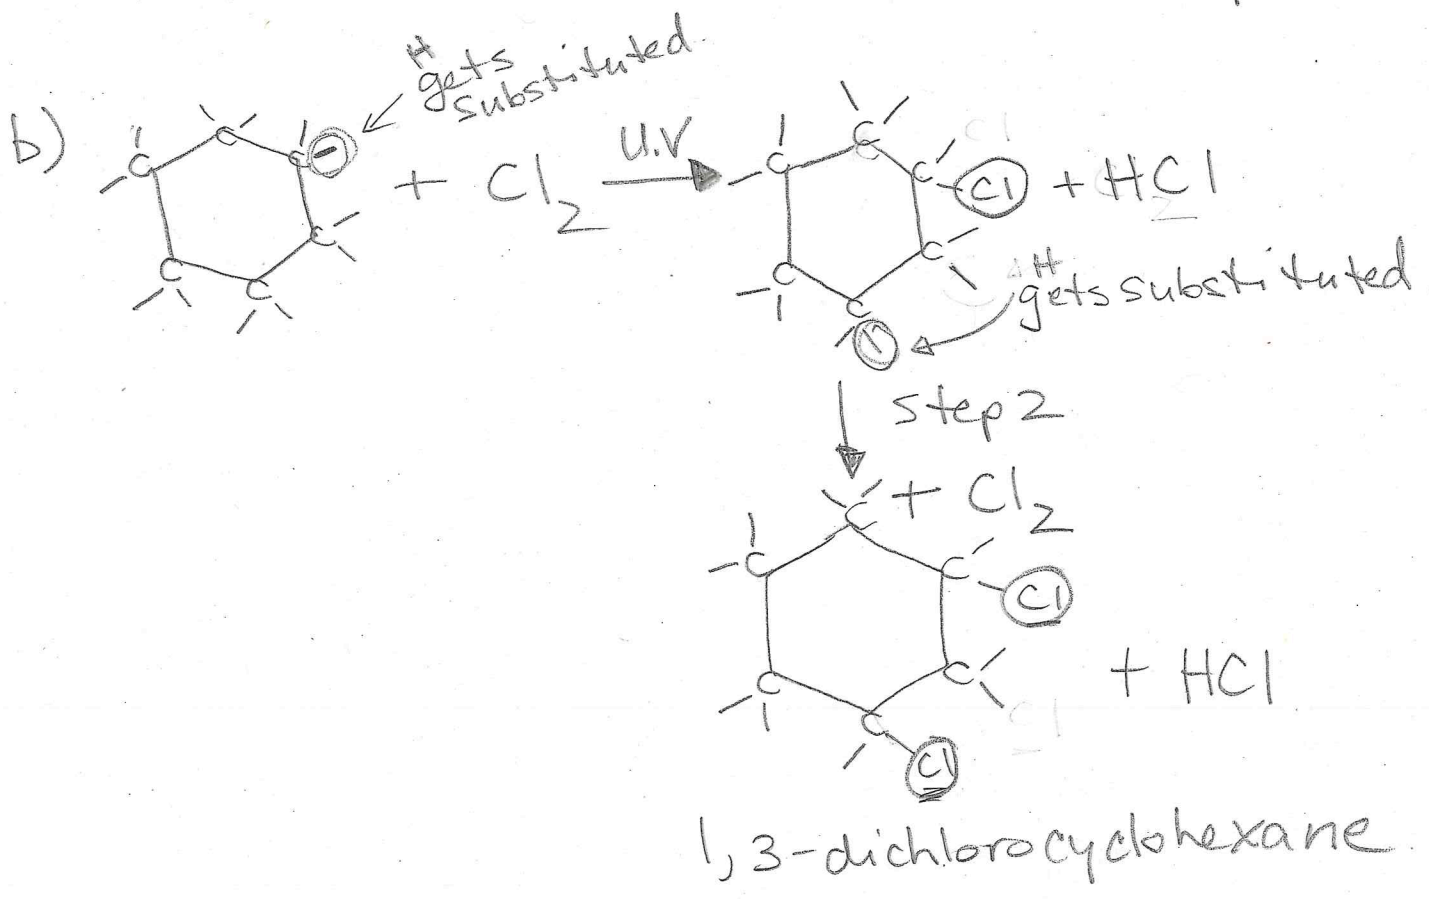 b)
H
gets
substituted.
C C C C C C
+ Cl2
U.V
C C C C C C
Cl
+ HCl
H
gets substituted
step 2
+ Cl2
C C C C C C
Cl
Cl
+ HCl
1,3-dichlorocyclohexane